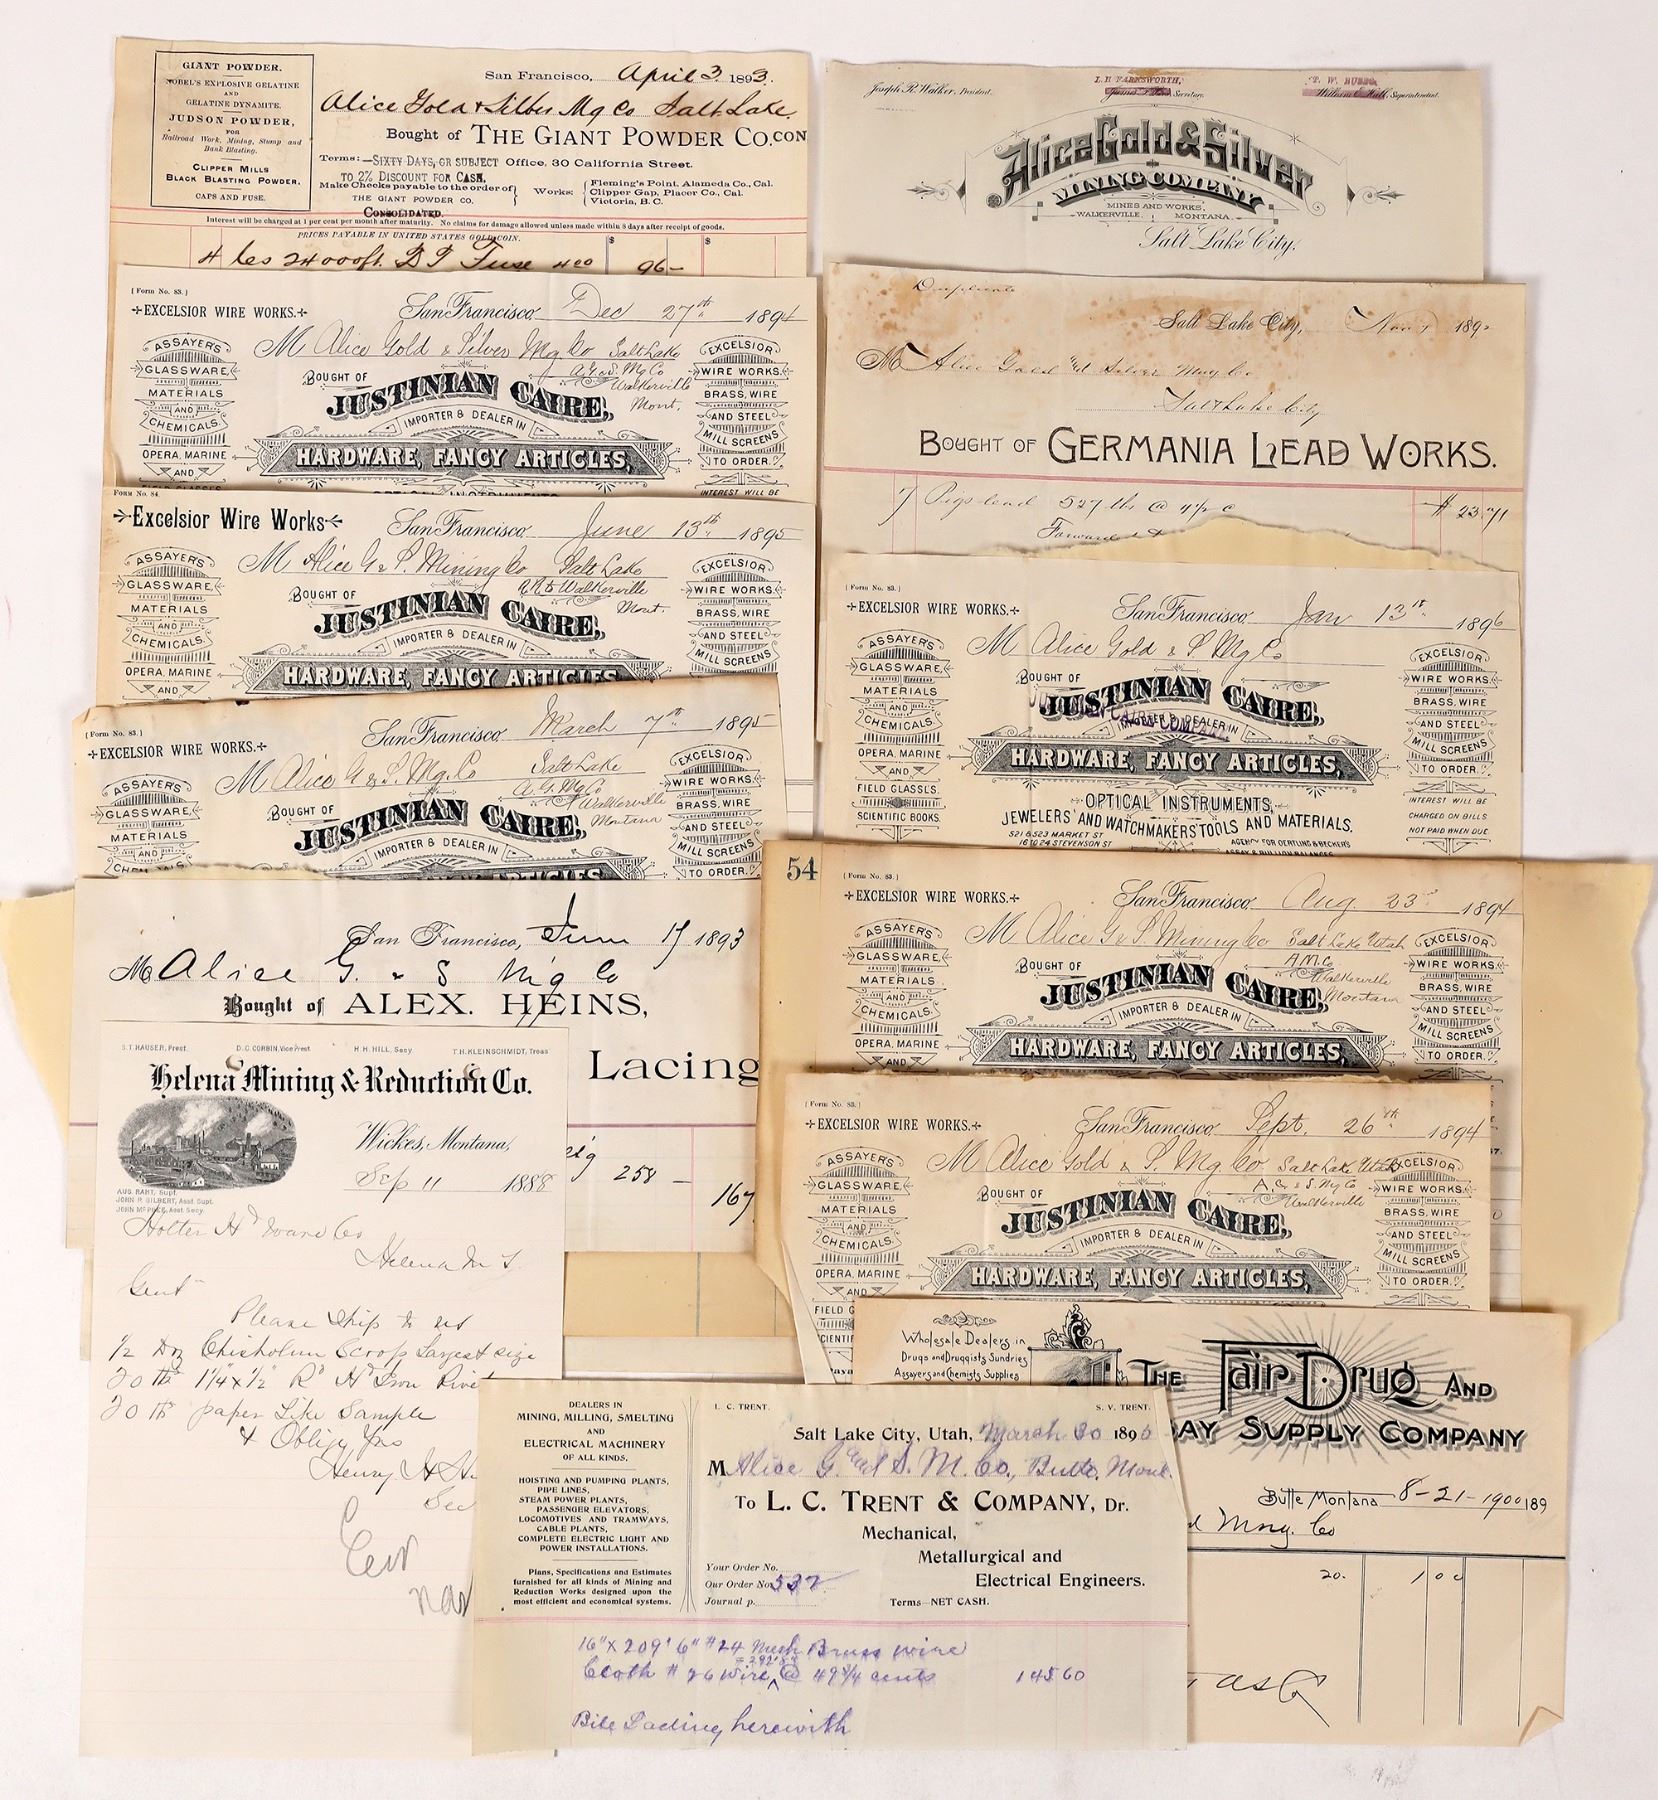 GIANT POWDER.
NOBEL'S EXPLOSIVE GELATINE
AND
GELATINE DYNAMITE.
JUDSON POWDER,
FOR
Railroad Work, Mining, Stump and
Bank Blasting.
CLIPPER MILLS
BLACK BLASTING POWDER.
CAPS AND FUSE.
San Francisco, April 3 1893.
Alice Gold & Silver Mg Co Salt Lake.
Bought of THE GIANT POWDER CO. CON
Terms:—SIXTY DAYS, OR SUBJECT Office, 30 California Street.
TO 2% DISCOUNT FOR CASH.
Make Checks payable to the order of
THE GIANT POWDER CO.
CONSOLIDATED.
Works: Fleming's Point, Alameda Co., Cal.
Clipper Gap, Placer Co., Cal.
Victoria, B. C.
Interest will be charged at 1 per cent per month after maturity. No claims for damage allowed unless made within 8 days after receipt of goods.
PRICES PAYABLE IN UNITED STATES GOLD COIN. $ $
4 Cs 24000 ft. D T Fuse 4.00 96 —
Joseph R. Walker, President.
L. H. FARNSWORTH,
Secretary.
William E. Hall, Superintendent.
Alice Gold & Silver
MINING COMPANY
MINES AND WORKS,
WALKERVILLE, MONTANA.
Salt Lake City,
[Form No. 83.]
EXCELSIOR WIRE WORKS.
San Francisco, Dec 27th 1894
M Alice Gold & Silver Mg Co Salt Lake
A. G. & S. Mg Co
Walkerville
Mont.
BOUGHT OF
JUSTINIAN CAIRE,
IMPORTER & DEALER IN
HARDWARE, FANCY ARTICLES,
OPTICAL INSTRUMENTS
ASSAYER'S
GLASSWARE,
MATERIALS
AND
CHEMICALS.
OPERA, MARINE
AND
FIELD GLASSES
EXCELSIOR
WIRE WORKS.
BRASS, WIRE
AND STEEL
MILL SCREENS
TO ORDER.
INTEREST WILL BE
Duplicate
Salt Lake City, Nov 189
M Alice Gold and Silver Mng Co
Salt Lake City
BOUGHT OF GERMANIA LEAD WORKS.
7 Pigs lead 527 lbs @ 4½ c $ 23.71
FORM No. 84.
Excelsior Wire Works
San Francisco, June 13th 1895
M Alice G & S. Mining Co Salt Lake
Walkerville
Mont.
BOUGHT OF
JUSTINIAN CAIRE,
IMPORTER & DEALER IN
HARDWARE, FANCY ARTICLES
ASSAYER'S
GLASSWARE,
MATERIALS
AND
CHEMICALS.
OPERA, MARINE
AND
EXCELSIOR
WIRE WORKS.
BRASS, WIRE
AND STEEL
MILL SCREENS
[Form No. 83.]
EXCELSIOR WIRE WORKS.
San Francisco, Jan 13th 1896
M Alice Gold & S Mg Co
BOUGHT OF
JUSTINIAN CAIRE,
IMPORTER & DEALER IN
HARDWARE, FANCY ARTICLES,
OPTICAL INSTRUMENTS,
JEWELERS' AND WATCHMAKERS' TOOLS AND MATERIALS.
521 & 523 MARKET ST
16 TO 24 STEVENSON ST
AGENCY FOR OERTLING & BECKER'S
ASSAY & BULLION BALANCES
ASSAYER'S
GLASSWARE,
MATERIALS
AND
CHEMICALS.
OPERA, MARINE
AND
FIELD GLASSES.
SCIENTIFIC BOOKS.
EXCELSIOR
WIRE WORKS.
BRASS, WIRE
AND STEEL
MILL SCREENS
TO ORDER.
INTEREST WILL BE
CHARGED ON BILLS
NOT PAID WHEN DUE.
[Form No. 83.]
EXCELSIOR WIRE WORKS.
San Francisco, March 7th 1895
M Alice G & S. Mg. Co Salt Lake
A. G. Mg Co
Walkerville
Montana
BOUGHT OF
JUSTINIAN CAIRE,
IMPORTER & DEALER IN
HARDWARE, FANCY ARTICLES
ASSAYER'S
GLASSWARE,
MATERIALS
AND
CHEMICALS
EXCELSIOR
WIRE WORKS.
BRASS, WIRE
AND STEEL
MILL SCREENS
TO ORDER.
54
[Form No. 83.]
EXCELSIOR WIRE WORKS.
San Francisco, Aug. 23rd 1894
M Alice G & S Mining Co Salt Lake Utah
A.M.Co
Walkerville
Montana
BOUGHT OF
JUSTINIAN CAIRE,
IMPORTER & DEALER IN
HARDWARE, FANCY ARTICLES,
ASSAYER'S
GLASSWARE,
MATERIALS
AND
CHEMICALS.
OPERA, MARINE
AND
EXCELSIOR
WIRE WORKS.
BRASS, WIRE
AND STEEL
MILL SCREENS
TO ORDER.
San Francisco, June 17 1893
M Alice G. & S Mg Co
Bought of ALEX. HEINS,
Lacing
258 — 167
S. T. HAUSER, Prest. D. C. CORBIN, Vice Prest. H. H. HILL, Secy. T. H. KLEINSCHMIDT, Treas
Helena Mining & Reduction Co.
Wickes, Montana,
Sep 11 1888
AUG. RAHT, Supt.
JOHN R. GILBERT, Asst. Supt.
JOHN McPHEE, Asst. Secy.
Holter Hdware Co
Helena M T.
Gent
Please ship to us
½ Dz Chisholm Scoop Largest size
20 lbs 1¼ x ½ Rd Hd Iron Rivet
20 lbs paper Like Sample
& Oblige Yrs
Henry H
Sec
[Form No. 83.]
EXCELSIOR WIRE WORKS.
San Francisco, Sept. 26th 1894
M Alice Gold & S. Mg Co. Salt Lake Utah
A. G. & S. Mg Co
Walkerville
BOUGHT OF
JUSTINIAN CAIRE,
IMPORTER & DEALER IN
HARDWARE, FANCY ARTICLES,
ASSAYER'S
GLASSWARE,
MATERIALS
AND
CHEMICALS.
OPERA, MARINE
AND
FIELD G
EXCELSIOR
WIRE WORKS.
BRASS, WIRE
AND STEEL
MILL SCREENS
TO ORDER.
Wholesale Dealers in
Drugs and Druggists Sundries
Assayers and Chemists Supplies
THE Fair Drug AND
SAY SUPPLY COMPANY
Butte Montana 8-21-1900 189
Mng. Co
20. 1 00
DEALERS IN
MINING, MILLING, SMELTING
AND
ELECTRICAL MACHINERY
OF ALL KINDS.
HOISTING AND PUMPING PLANTS,
PIPE LINES,
STEAM POWER PLANTS,
PASSENGER ELEVATORS,
LOCOMOTIVES AND TRAMWAYS,
CABLE PLANTS,
COMPLETE ELECTRIC LIGHT AND
POWER INSTALLATIONS.
Plans, Specifications and Estimates
furnished for all kinds of Mining and
Reduction Works designed upon the
most efficient and economical systems.
L. C. TRENT. S. V. TRENT.
Salt Lake City, Utah, March 30 189
M Alice G. and S. M. Co., Butte, Mont.
To L. C. TRENT & COMPANY, Dr.
Mechanical,
Metallurgical and
Electrical Engineers.
Your Order No.
Our Order No. 532
Journal p.
Terms—NET CASH.
16" x 209' 6" #24 Mesh Brass wire
Cloth # 26 wire, @ 49¾ cents 145.60
Bill Lading herewith